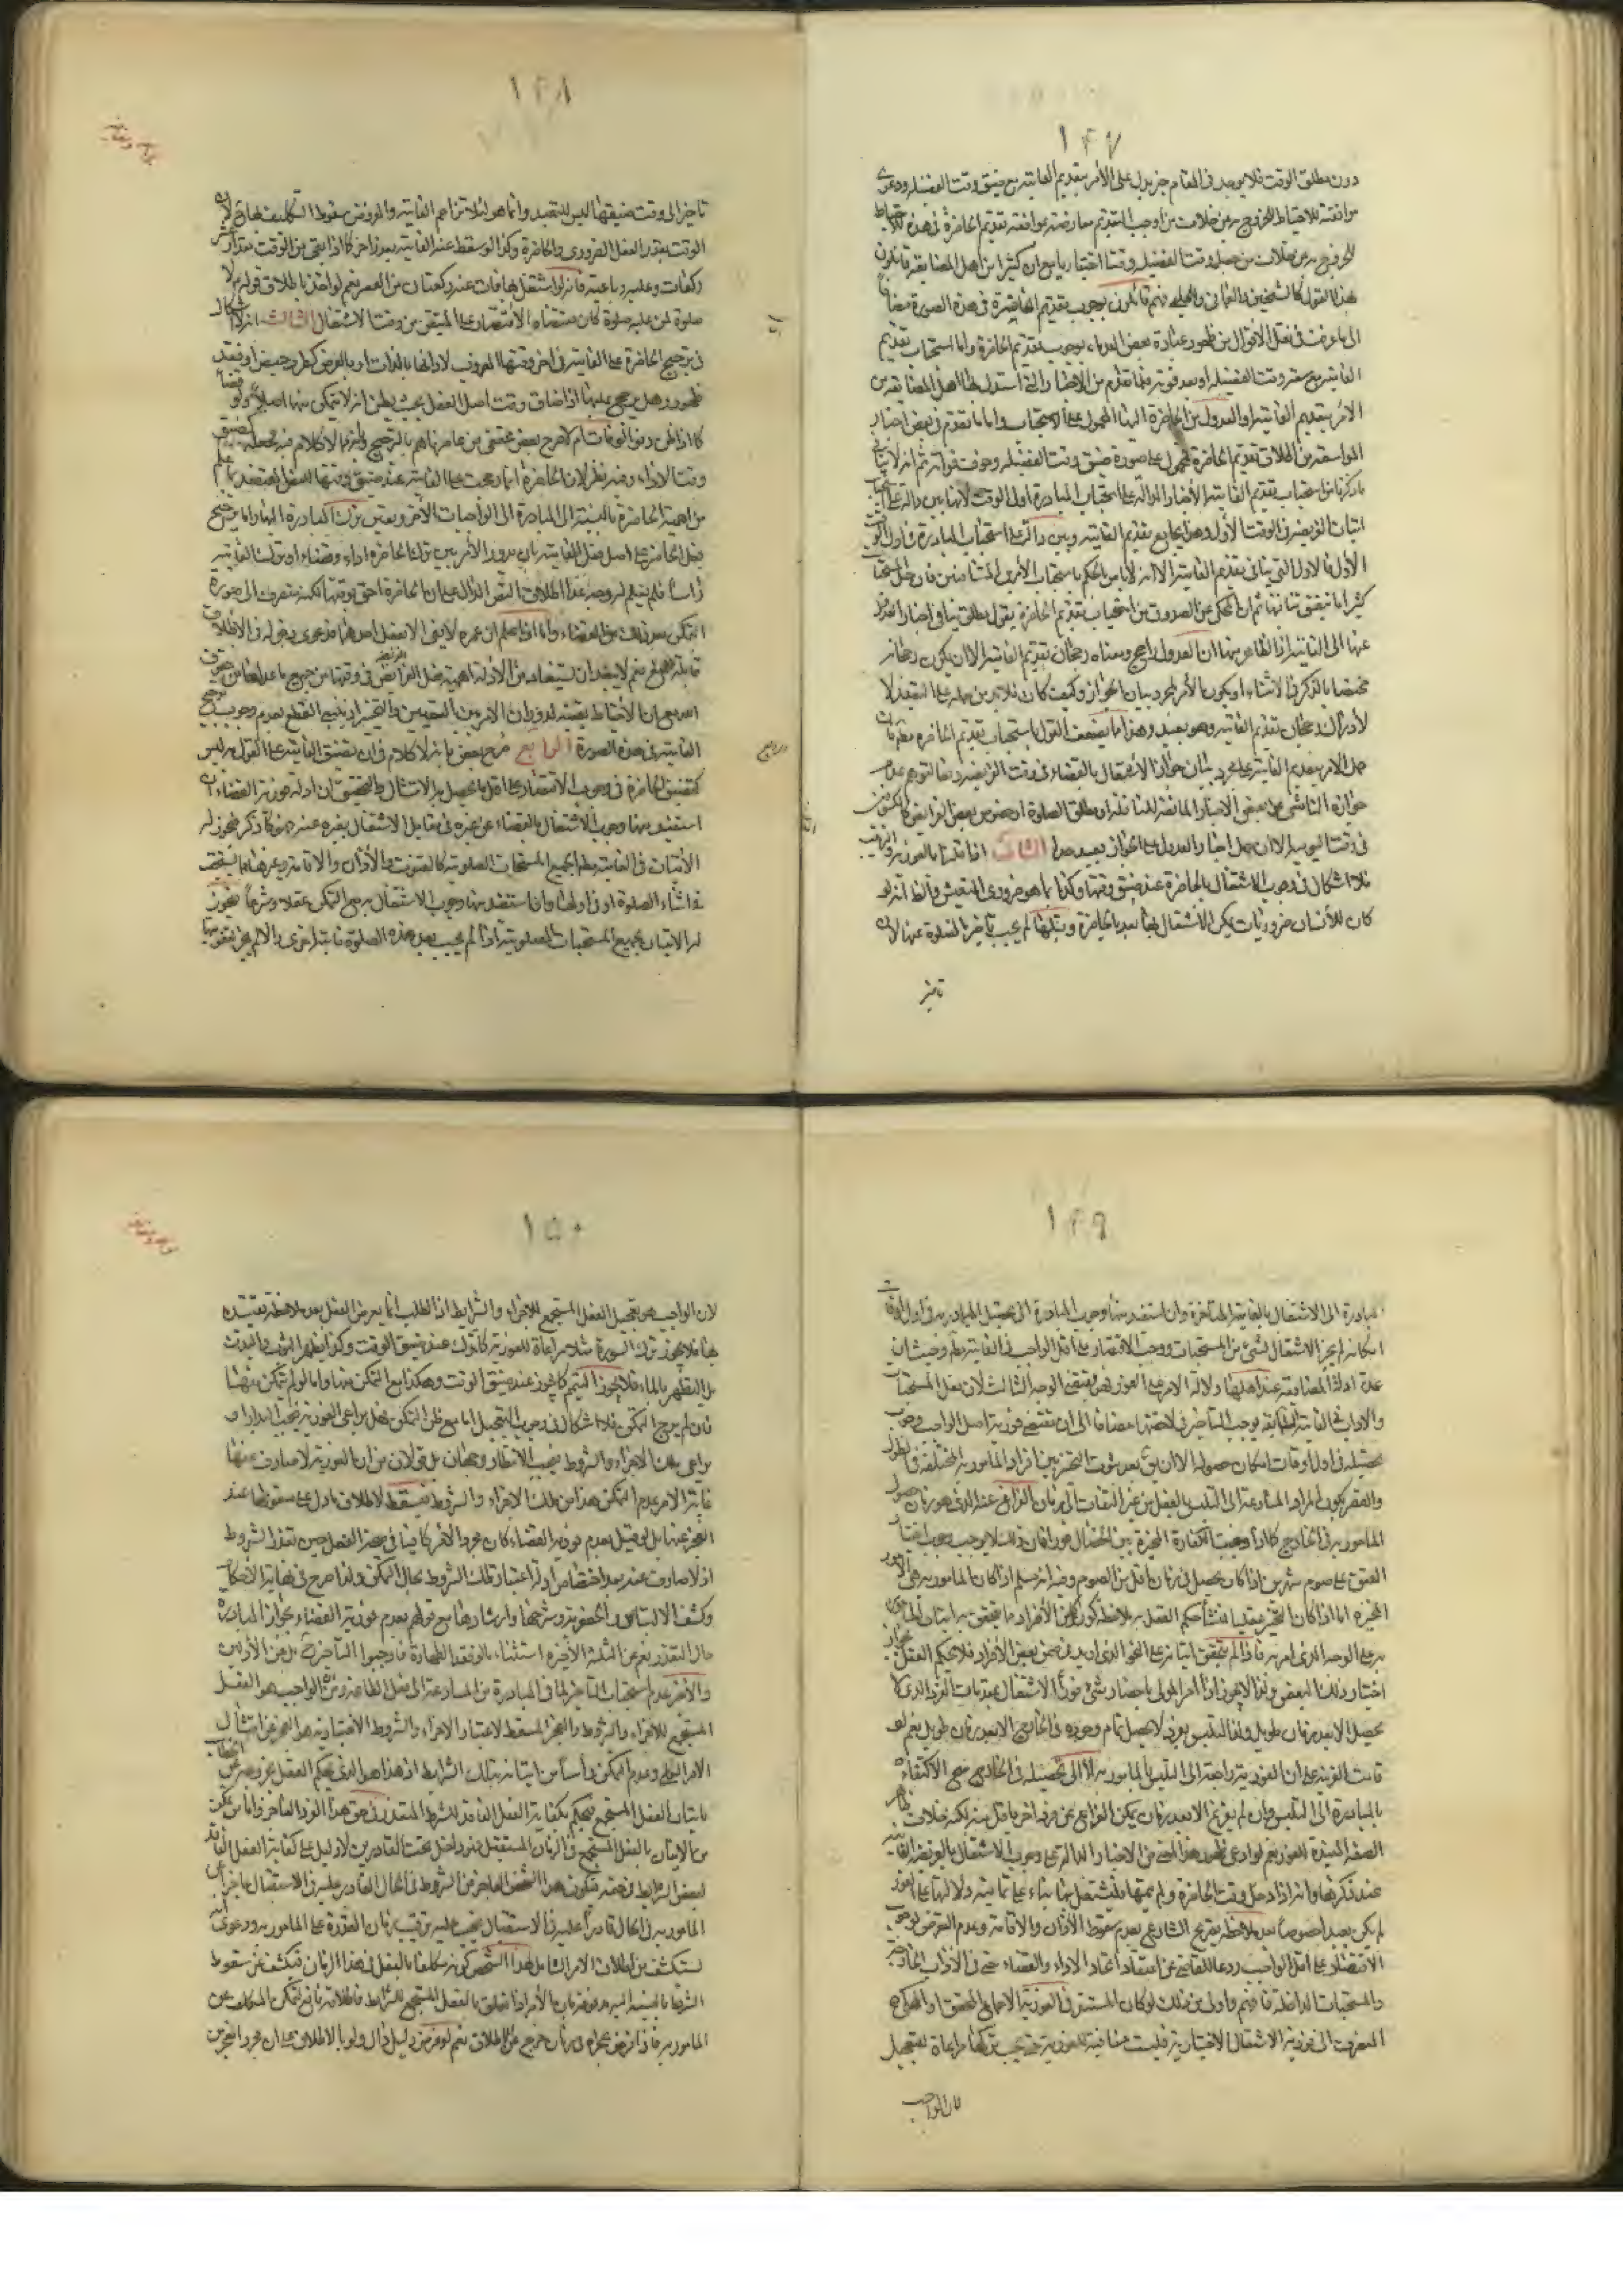 ١٤٧
دون مطلق الوقت فلا يوجد في المقام خبر يدل على الأمر بتقديم الفائتة مع ضيق وقت الفضيلة ودعوى
موافقته للاحتياط للخروج من خلاف من أوجب التقديم معارضة بموافقة تقديم الحاضرة في هذه للاحتياط
للخروج من خلاف من جعل وقت الفضيلة وقتا اختياريا مع ان كثيرا من أهل المضايقة قائلون
بهذا القول كالشيخين والعماني والحلبي فهم قائلون بوجوب تقديم الحاضرة في هذه الصورة مضافا
الى ما عرفت في نقل الاقوال من ظهور عبارة بعض القدماء بوجوب تقديم الحاضرة واما استحباب تقديم
الفائتة مع سعة وقت الفضيلة او بعد فوته فلما تقدم من الاخبار التي استدل بها اهل المضايقة من
الامر بتقديم الفائتة او العدول من الحاضرة اليها المحمول على الاستحباب واما ما تقدم في بعض اخبار
المواسعة من اطلاق تقديم الحاضرة فمحمول على صورة ضيق وقت الفضيلة وخوف فواته ثم انه لا ينافي
ما ذكرنا من استحباب تقديم الفائتة الأخبار الدالة على استحباب المبادرة اول الوقت لانها بين دالة على
اتيان الفريضة في الوقت الأول وهذا يجامع تقديم الفائتة وبين دالة على استحباب المبادرة في اول الوقت
الأول فالاول التي ينافي تقديم الفائتة الا انه لا بأس بالحكم باستحباب الأمرين المتنافيين فان
كثيرا ما يتفق تنافيها ثم ان المحكي عن الصدوق من استحباب تقديم الحاضرة بقول مطلق ينافي اخبار العدول
عنها الى الفائتة اذ الظاهر منها ان العدول راجح ومعناه رجحان تقديم الفائتة الا ان يكون رجحانه
مختصا بالذكر في الاثناء او يكون الأمر لمجرد بيان الجواز وكيف كان فلا بد من حمله على التقييد لا
لادراك رجحان تقديم الفائتة وهو بعيد وهذا مما يضعف القول باستحباب تقديم الحاضرة مطلقا
حمل الامر بتقديم الفائتة على مجرد بيان جواز الاشتغال بالقضاء في وقت الفريضة دفعا لتوهم عدم
جوازه الناشي عن بعض الاخبار المانعة
في وقت اليومية الا ان حمل اخبار العدول على الجواز بعيد جدا الثاني اذا قلنا بالفورية والترتيب
فلا اشكال في وجوب الاشتغال بالحاضرة عند ضيق وقتها وكذا بما هو ضروري التعيش والظاهر انه لو
كان للأنسان ضروريات يمكن الاشتغال بها بعد الحاضرة وقبلها لم يجب تأخير الصلوة عنها لان
تاخير
١٤٨
تاخيرا لى وقت ضيقها ليس للتعبد وانما هو لئلا تزاحم الفائتة والمفروض سقوط التكليف بها في
الوقت بقدر الفعل الضروري والحاضرة وكذا لو سقط عنه الفائتة بعذر آخر كما اذا بقي من الوقت مقدار
ركعات وعليه رباعية فانه لو اشتغل بها فات عنه ركعتان من العصر نعم لو اخذنا باطلاق قوله لا
صلوة لمن عليه صلوة كان مقتضاه الاقتصار على المتيقن من وقت الاشتغال الثالث انه لا اشكال
في ترجيح الحاضرة على الفائتة في اخر وقتها المعروف لاولها بالذات او بالعرض كطرو حيض او فقد
طهور وهل يرجح عليها اذا ضاق وقت اصل الفعل بحيث يظن انه لا يتمكن منها اصلا
كما اذا ظن دنو الوفات ام لا صرح بعض محققي من عاصرناهم بالترجيح
وقت الاداء وفيه نظر لان الحاضرة انما رجحت على الفائتة عند ضيق وقتها الفعل المعتضد بما علم
من اهمية الحاضرة بالنسبة الى المبادرة الى الواجبات الأخر ويعني بترك المبادرة اليها واما ترجيح
فعل الحاضرة على اصل فعل الفائتة بان يدور الأمر بين ترك الحاضرة اداء وقضاء او ترك الفائتة
رأسا فلم يعلم له وجه عدا اطلاق النص الدال على ان الحاضرة احق بوقتها لكنه منصرف الى صورة
التمكن بعد ذلك من القضاء واما اذا علم ان عمره لا يفي الا بفعل احدهما فدعوى دخوله في الاطلاق
قابلة للمنع نعم لا يبعد ان يستفاد من الأدلة اهمية فعل الفرائض في وقتها من جميع ما عداها من حقوق
الله مع ان الاحتياط يقتضيه لدوران الامر بين التعيين والتخيير اذ ينبغي القطع بعدم وجوب ترجيح
الفائتة في هذه الصورة الرابع صرح بعض بانه لا كلام في ان تضيق الفائتة على القول به ليس
كتضيق الحاضرة في وجوب الاقتصار على اقل ما يحصل به الامتثال والتحقيق ان ادلة فورية القضاء ان
استفيد منها وجوب الاشتغال بالقضاء عن غيره في مقابل الاشتغال بغيره عنه فهو كما ذكر فيجوز له
الأتيان في الفائتة بجميع المستحبات الصلوتية كالقنوت والأذان والاقامة وغيرها مما يستحب
في اثناء الصلوة او في اولها وان استفيد منها وجوب الاشتغال به مع التمكن عقلا وشرعا فيجوز
له الاتيان بجميع المستحبات الصلوتية اذا لم يجب بعد هذه الصلوة فائتة اخرى والا لم يجز تفويتها
١٤٩
المبادرة الى الاشتغال بالفائتة المتأخرة وان استفيد منها وجوب المبادرة الى تحصيل المبادر به في اول اوقات
امكانه لم يجز الاشتغال بشئ من المستحبات ووجب الاقتصار على اقل الواجب في الفائتة مطلقا وحيث ان
عمدة ادلة المضايقة عند اهلها دلالة الامر على الفور فهي يقتضي الوجه الثالث لان فعل المستحبات
والاداب في الفائتة السابقة يوجب التأخير في لاحقتها مضافا الى ان مقتضى فورية اصل الواجب وجوب
تحصيله في اول اوقات امكان حصوله الا ان يقال بعد ثبوت التخيير بين افراد المأمور به المختلفة في الطول
والقصر يكون المراد المسارعة الى التلبس بالفعل من غير التفات الى زمان الفراغ عنه الذي هو زمان حصول
المأمور به في الخارج كما اذا وجبت الكفارة المخيرة بين الخصال فورا فان ذلك لا يوجب وجوب اختيار
العتق على صوم شهرين اذا كان يحصل في زمان اقل من الصوم وفيه انه مسلم اذا كان المأمور به هي الامور
المخيرة اما اذا كان التخيير عقليا منشأه حكم العقل بملاحظة كون كل من الأفراد مما يتحقق به اتيان المأمور
به على الوجه الذي امر به فاذا لم يتحقق اتيانه على النحو الذي اريد في ضمن بعض الأفراد فلا يحكم العقل بجواز
اختيار ذلك البعض ولذا لا يجوز اذا امر المولى باحضار شئ فورا الاشتغال بمقدمات الفرد الذي لا
يحصل الا بعد زمان طويل ولا التلبس بفرد لا يحصل تمام وجوده في الخارج الا بعد زمان طويل نعم لو
قامت القرينة على ان الفورية راجعة الى التلبس بالمأمور به لا الى تحصيله في الخارج صح الاكتفاء
بالمبادرة الى التلبس وان لم يفرغ الا بعد زمان يمكن الفراغ عن فرد اخر باقل منه لكنه خلاف ظاهر
الصيغة المفيدة للفور نعم لو ادعى ظهور هذا المعنى من الاخبار الدالة على وجوب الاشتغال بالفريضة الفائتة
عند ذكرها وانه اذا دخل وقت الحاضرة ولم يتمها فليشتغل بها بناء على تمامية دلالتها على الفور
لم يكن بعيدا خصوصا بعد ملاحظة تصريح الشارع بعدم سقوط الأذان والاقامة وعدم التعرض لوجوب
الاقتصار على اقل الواجب ردعا للقاضي عن اعتقاد اتحاد الاداء والقضاء حتى في الآداب الخارجة
والمستحبات الداخلة فافهم واولى من ذلك لو كان المستند في الفورية الاجماع المحقق او المحكي
المنصرف الى فورية الاشتغال الاختيارية فليست منافية للفورية حتى يجب تركها مراعاة لتعجيل
لان الواجب
١٥٠
لان الواجب هو تعجيل الفعل المستجمع للاجزاء والشرائط اذ الطلب انما يعرض الفعل بعد ملاحظة تقييده
بها فلا يجوز ترك السورة مثلا مراعاة للفورية كما تترك عند ضيق الوقت وكذا يطهر الثوب والبدن
بل التطهر بالماء فلا يجوز التيمم كما يجوز عند ضيق الوقت وهكذا مع التمكن منها واما لو لم يتمكن منها
فان لم يرج التمكن فلا اشكال في وجوب التعجيل اما مع ظن التمكن فهل يراعى الفورية فيجب البدار او
يراعى تلك الاجزاء والشروط فيجب الانتظار وجهان بل قولان من ان الفورية لا صارف عنها
غاية الامر عدم التمكن هذا من تلك الاجزاء والشروط فيسقط لاطلاق ما دل على سقوطها عند
العجز عنها بل لو قيل بعدم فورية القضاء كان مجرد الأمر كافيا في صحة الفعل حين تعذر الشروط
اذ لا صارف عنه بعد اختصاص ادلة اعتبار تلك الشروط بحال التمكن ولذا صرح في نهاية الاحكام
وكشف الالتباس والجعفرية وشرحها وارشادها مع قولهم بعدم فورية القضاء بجواز المبادرة
حال التعذر نعم عن الثلثة الأخيرة استثناء فاقد الطهارة فاوجبوا التأخير بل عن الأولين
والأخير عدم استحباب التأخير لما في المبادرة من المسارعة الى فعل الطاعة ومن ان الواجب هو الفعل
المستجمع للأجزاء والشروط والعجز المسقط لاعتبار الاجزاء والشروط الاختيارية هو العجز عن امتثال
الامر الكلي وعدم التمكن رأسا من اتيانه بتلك الشرائط اذ هذا هو الذي يحكم العقل بخروجه عن الخطاب
باتيان الفعل المستجمع فيحكم بكفاية الفعل الفاقد للشرط المتعذر في حق هذا الفرد العاجز واما من تمكن
من الاتيان بالفعل المستجمع في الزمان المستقبل فهو داخل تحت القادرين لا دليل على كفاية الفعل الفاقد
لبعض الشرائط في حقه فيكون هذا الشخص العاجز من الشروط في الحال القادر عليه في الاستقبال
المأمور به في الحال قادرا عليه في الاستقبال فيجب عليه ترقب زمان القدرة على المأمور به ودعوى انه
يستكشف من اطلاق الامر الشامل لهذا الشخص كونه مكلفا بالفعل في هذا الزمان فيكشف عن سقوط
الشرط بالنسبة اليه مدفوعة بان الأمر اذا تعلق بالفعل المستجمع للشرائط فاطلاقه تابع لتمكن المكلف من
المأمور به فاذا فرض عجزه في زمان خرج عن الاطلاق نعم لو فرض دليل دال ولو بالاطلاق على ان مجرد العجز من